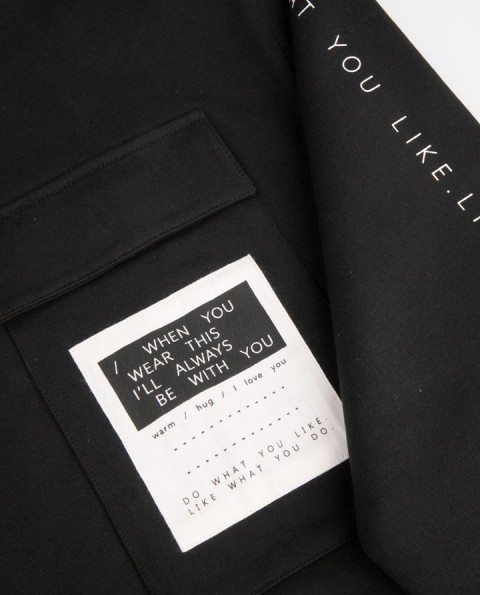 YOU LIKE.
/ WHEN YOU
WEAR THIS
I'LL ALWAYS
BE WITH YOU
warm / hug / I love you
DO WHAT YOU LIKE.
LIKE WHAT YOU DO.